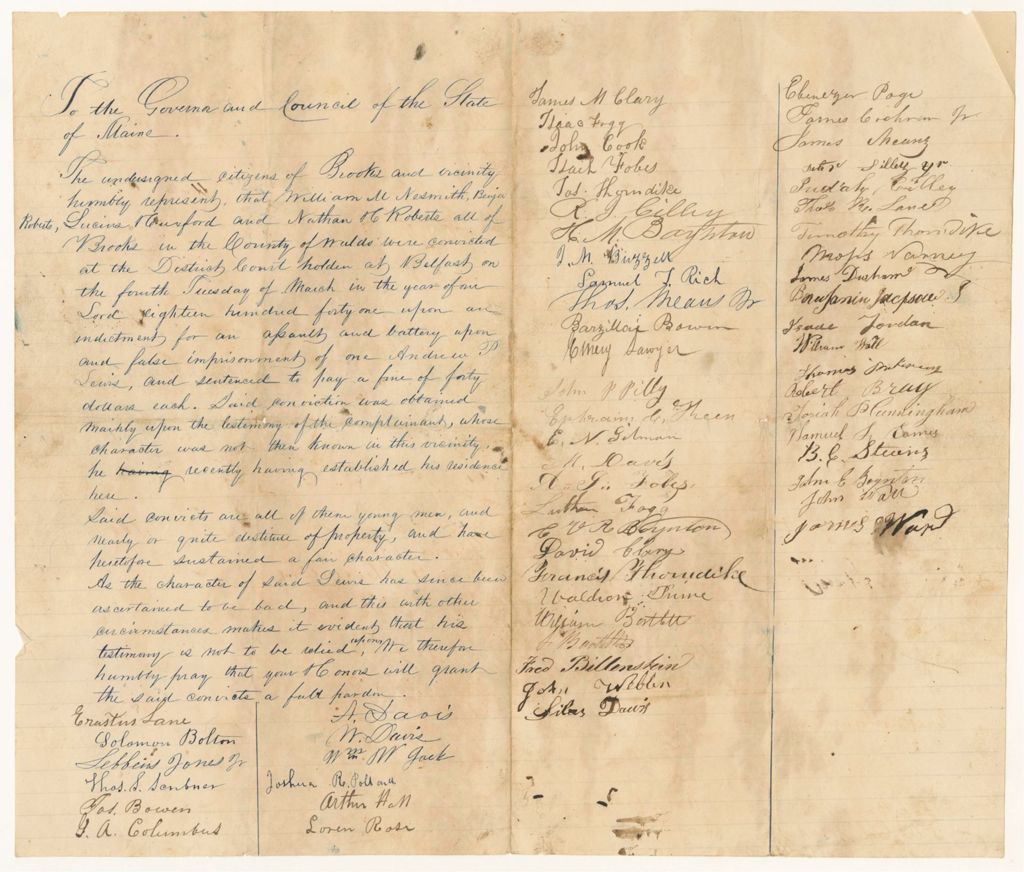 To the Governor and Council of the State
of Maine.
The undersigned citizens of Brooks and vicinity
humbly represent, that William M Nesmith, Benja
Roberts, Lucius H and Nathan H C Roberts all of
Brooks in the County of Waldo were convicted
at the District Court holden at Belfast on
the fourth Tuesday of March in the year of our
Lord eighteen hundred forty one upon an
indictment for an assault and battery upon
and false imprisonment of one Andrew P
Lewis, and sentenced to pay a fine of forty
dollars each. Said conviction was obtained
mainly upon the testimony of the complainant, whose
character was not then known in this vicinity,
he having recently having established his residence
here.
Said convicts are all of them young men, and
nearly or quite destitute of property, and have
heretofore sustained a fair character.
As the character of said Lewis has since been
ascertained to be bad, and this with other
circumstances makes it evident that his
testimony is not to be relied upon, We therefore
humbly pray that your Honors will grant
the said convicts a full pardon.
Erastus Lane
Solomon Bolton
Jones Jr
Thos. S. Scribner
Jas. Bowen
J. A. Columbus
A. Davis
W. Davis
Wm W Gack
Joshua R. Pollard
Arthur Hall
Loren Rose
James M Clary
Isaac Fogg
John Cook
Fobes
Jas. Thorndike
R. J Cilley
H. M. Boynton
J. M. Buzzell
Samuel F. Rich
Thos. Means Jr
Barzillai Bowen
Emery Sawyer
John P Pilly
Ephraim C. Theen
E. N. Gilman
M. Davis
A. J. Fobes
Luther Fogg
C V R Boynton
David Clary
Francis Thorndike
Waldron Prime
William Bartlett
Bartlett
Fred Billenskin
John Webber
Silas Davis
Ebenezer Page
James Cochran Jr
James Means
Peter Silley
Cilley
Thos R. Lane
Timothy Thorndike
Moses Varney
James Durham
Benjamin Jackson
Isaac Jordan
William Wall
Thomas Pickering
Robert Bray
Josiah P Cunningham
Samuel J. Eames
B. C. Stevens
John C Boynton
John Wall
James Ward